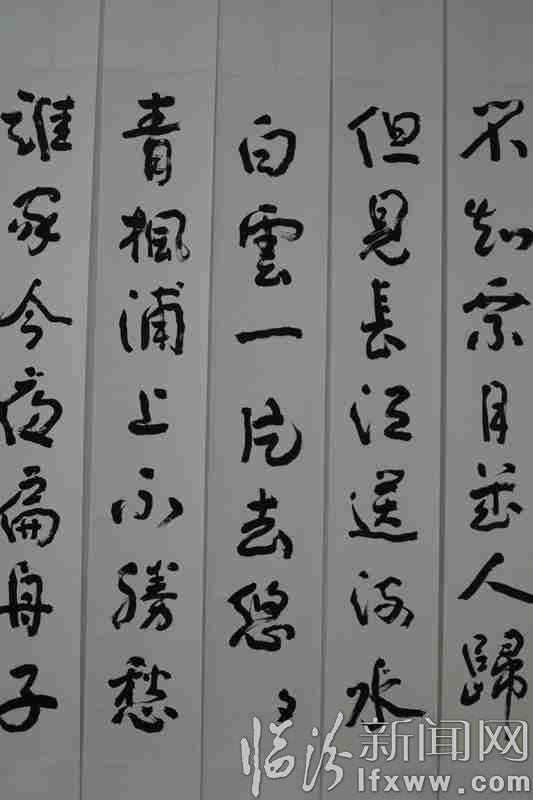 不知乘月幾人歸
但見長江送流水
白雲一片去悠々
青楓浦上不勝愁
誰家今夜扁舟子
临汾新闻网
lfxww.com